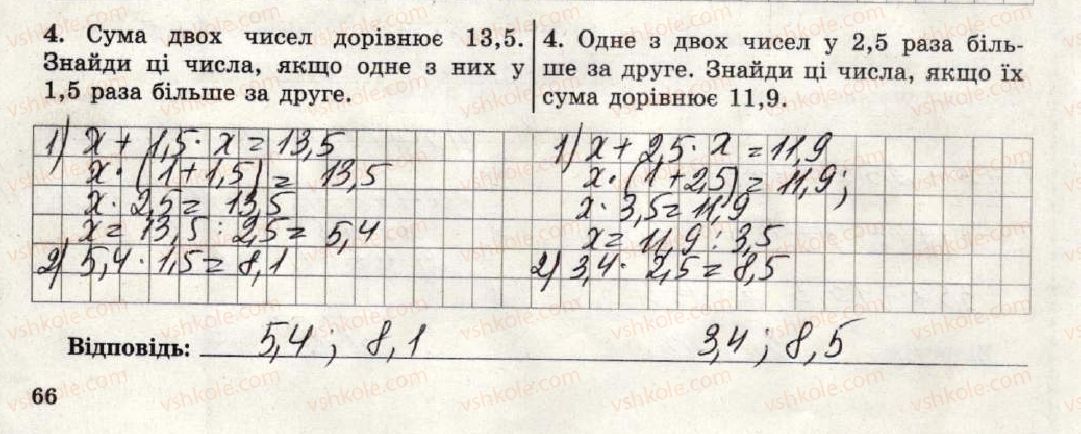 4. Сума двох чисел дорівнює 13,5.
Знайди ці числа, якщо одне з них у
1,5 раза більше за друге.
4. Одне з двох чисел у 2,5 раза біль-
ше за друге. Знайди ці числа, якщо їх
сума дорівнює 11,9.
1) x + 1,5 · x = 13,5
x · (1 + 1,5) = 13,5
x · 2,5 = 13,5
x = 13,5 : 2,5 = 5,4
2) 5,4 · 1,5 = 8,1
1) x + 2,5 · x = 11,9
x · (1 + 2,5) = 11,9;
x · 3,5 = 11,9
x = 11,9 : 3,5
2) 3,4 · 2,5 = 8,5
Відповідь: 5,4 ; 8,1 3,4 ; 8,5
66
vshkole.com